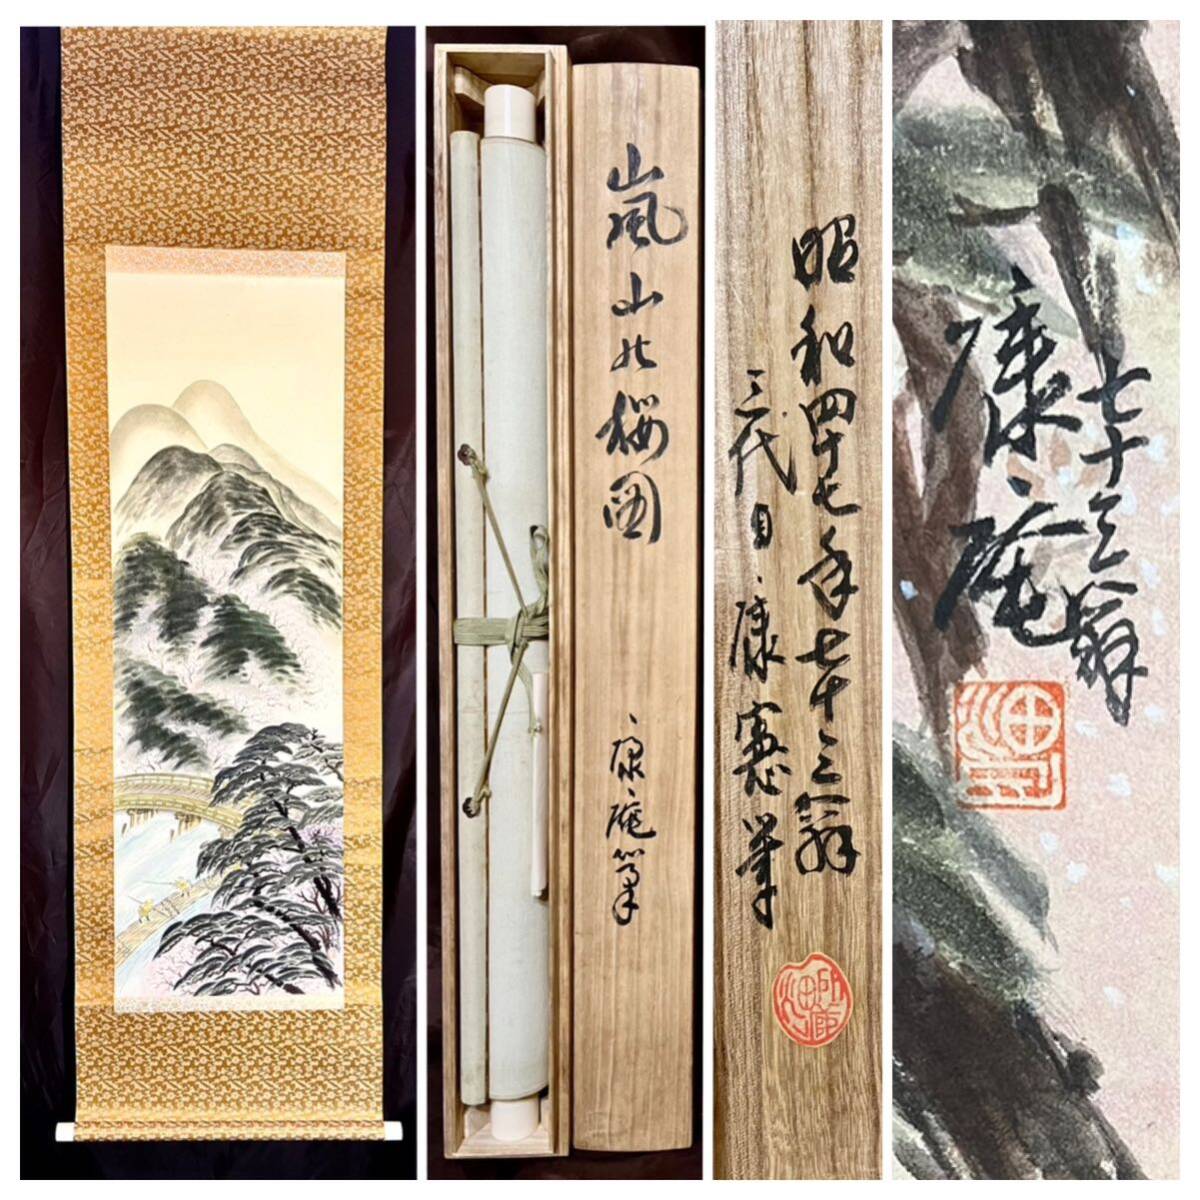 嵐山の桜図
康庵筆
昭和四十七年七十三翁
三代目康憲筆
七十三翁
康庵